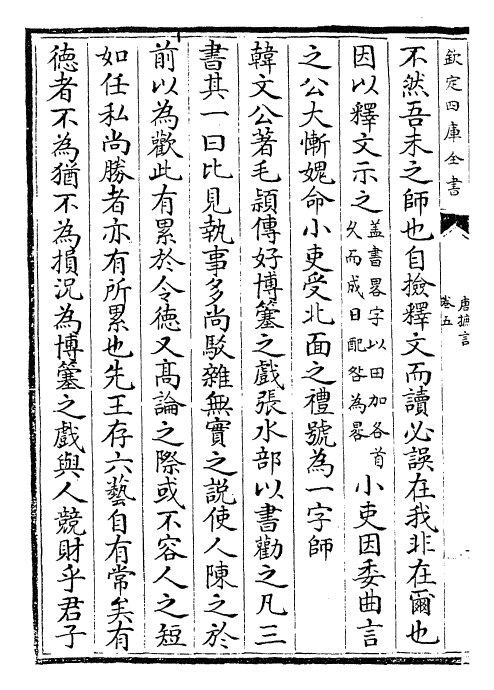 欽定四庫全書
唐摭言
卷五
不然吾未之師也自撿釋文而讀必誤在我非在爾也
因以釋文示之
盖書畧字以田加各首
久而成日配咎為晷
小吏因委曲言
之公大慚媿命小吏受北面之禮號為一字師
韓文公著毛頴傳好博簺之戲張水部以書勸之凡三
書其一曰比見執事多尚駁雜無實之說使人陳之於
前以為歡此有累於令徳又髙論之際或不容人之短
如任私尚勝者亦有所累也先王存六藝自有常矣有
徳者不為猶不為損況為博簺之戲與人競財乎君子